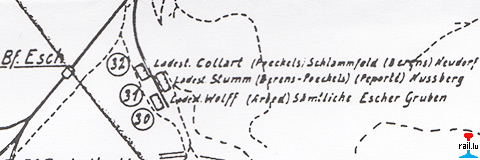 Bf. Esch
32 Ladest. Collart (Poeckels; Schlammfeld (Berens) Neudorf
31 Ladest Stumm (Berens-Poeckels) (Peporté) Nussberg
30 Ladest. Wolff (Arbed) Sämtliche Escher Gruben
rail.lu